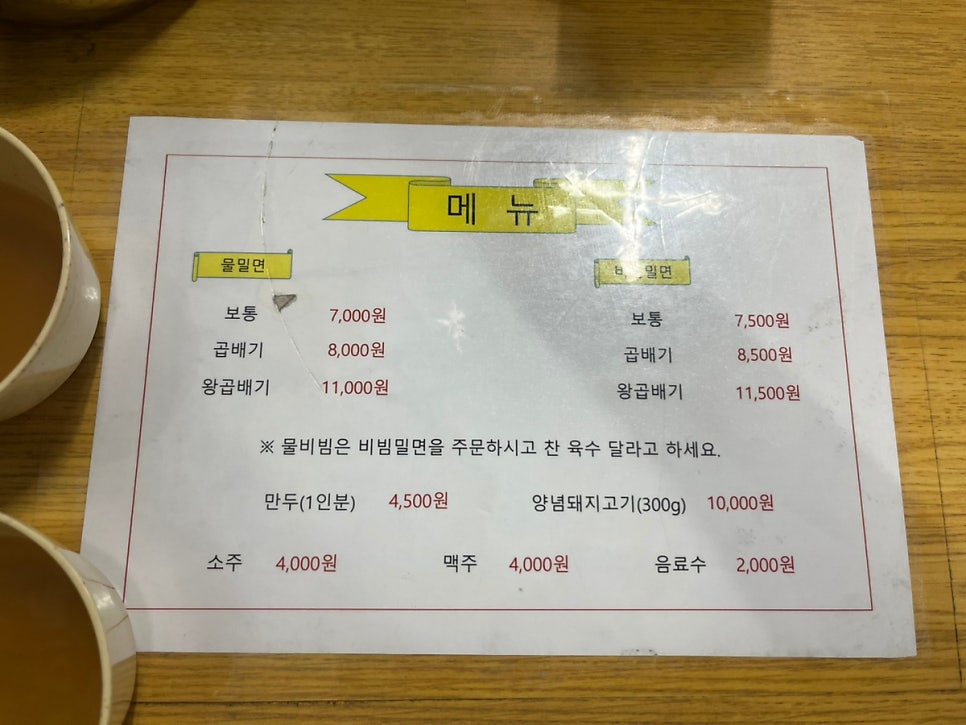 메 뉴
물밀면 비빔밀면
보통 7,000원 보통 7,500원
곱배기 8,000원 곱배기 8,500원
왕곱배기 11,000원 왕곱배기 11,500원
※ 물비빔은 비빔밀면을 주문하시고 찬 육수 달라고 하세요.
만두(1인분) 4,500원 양념돼지고기(300g) 10,000원
소주 4,000원 맥주 4,000원 음료수 2,000원